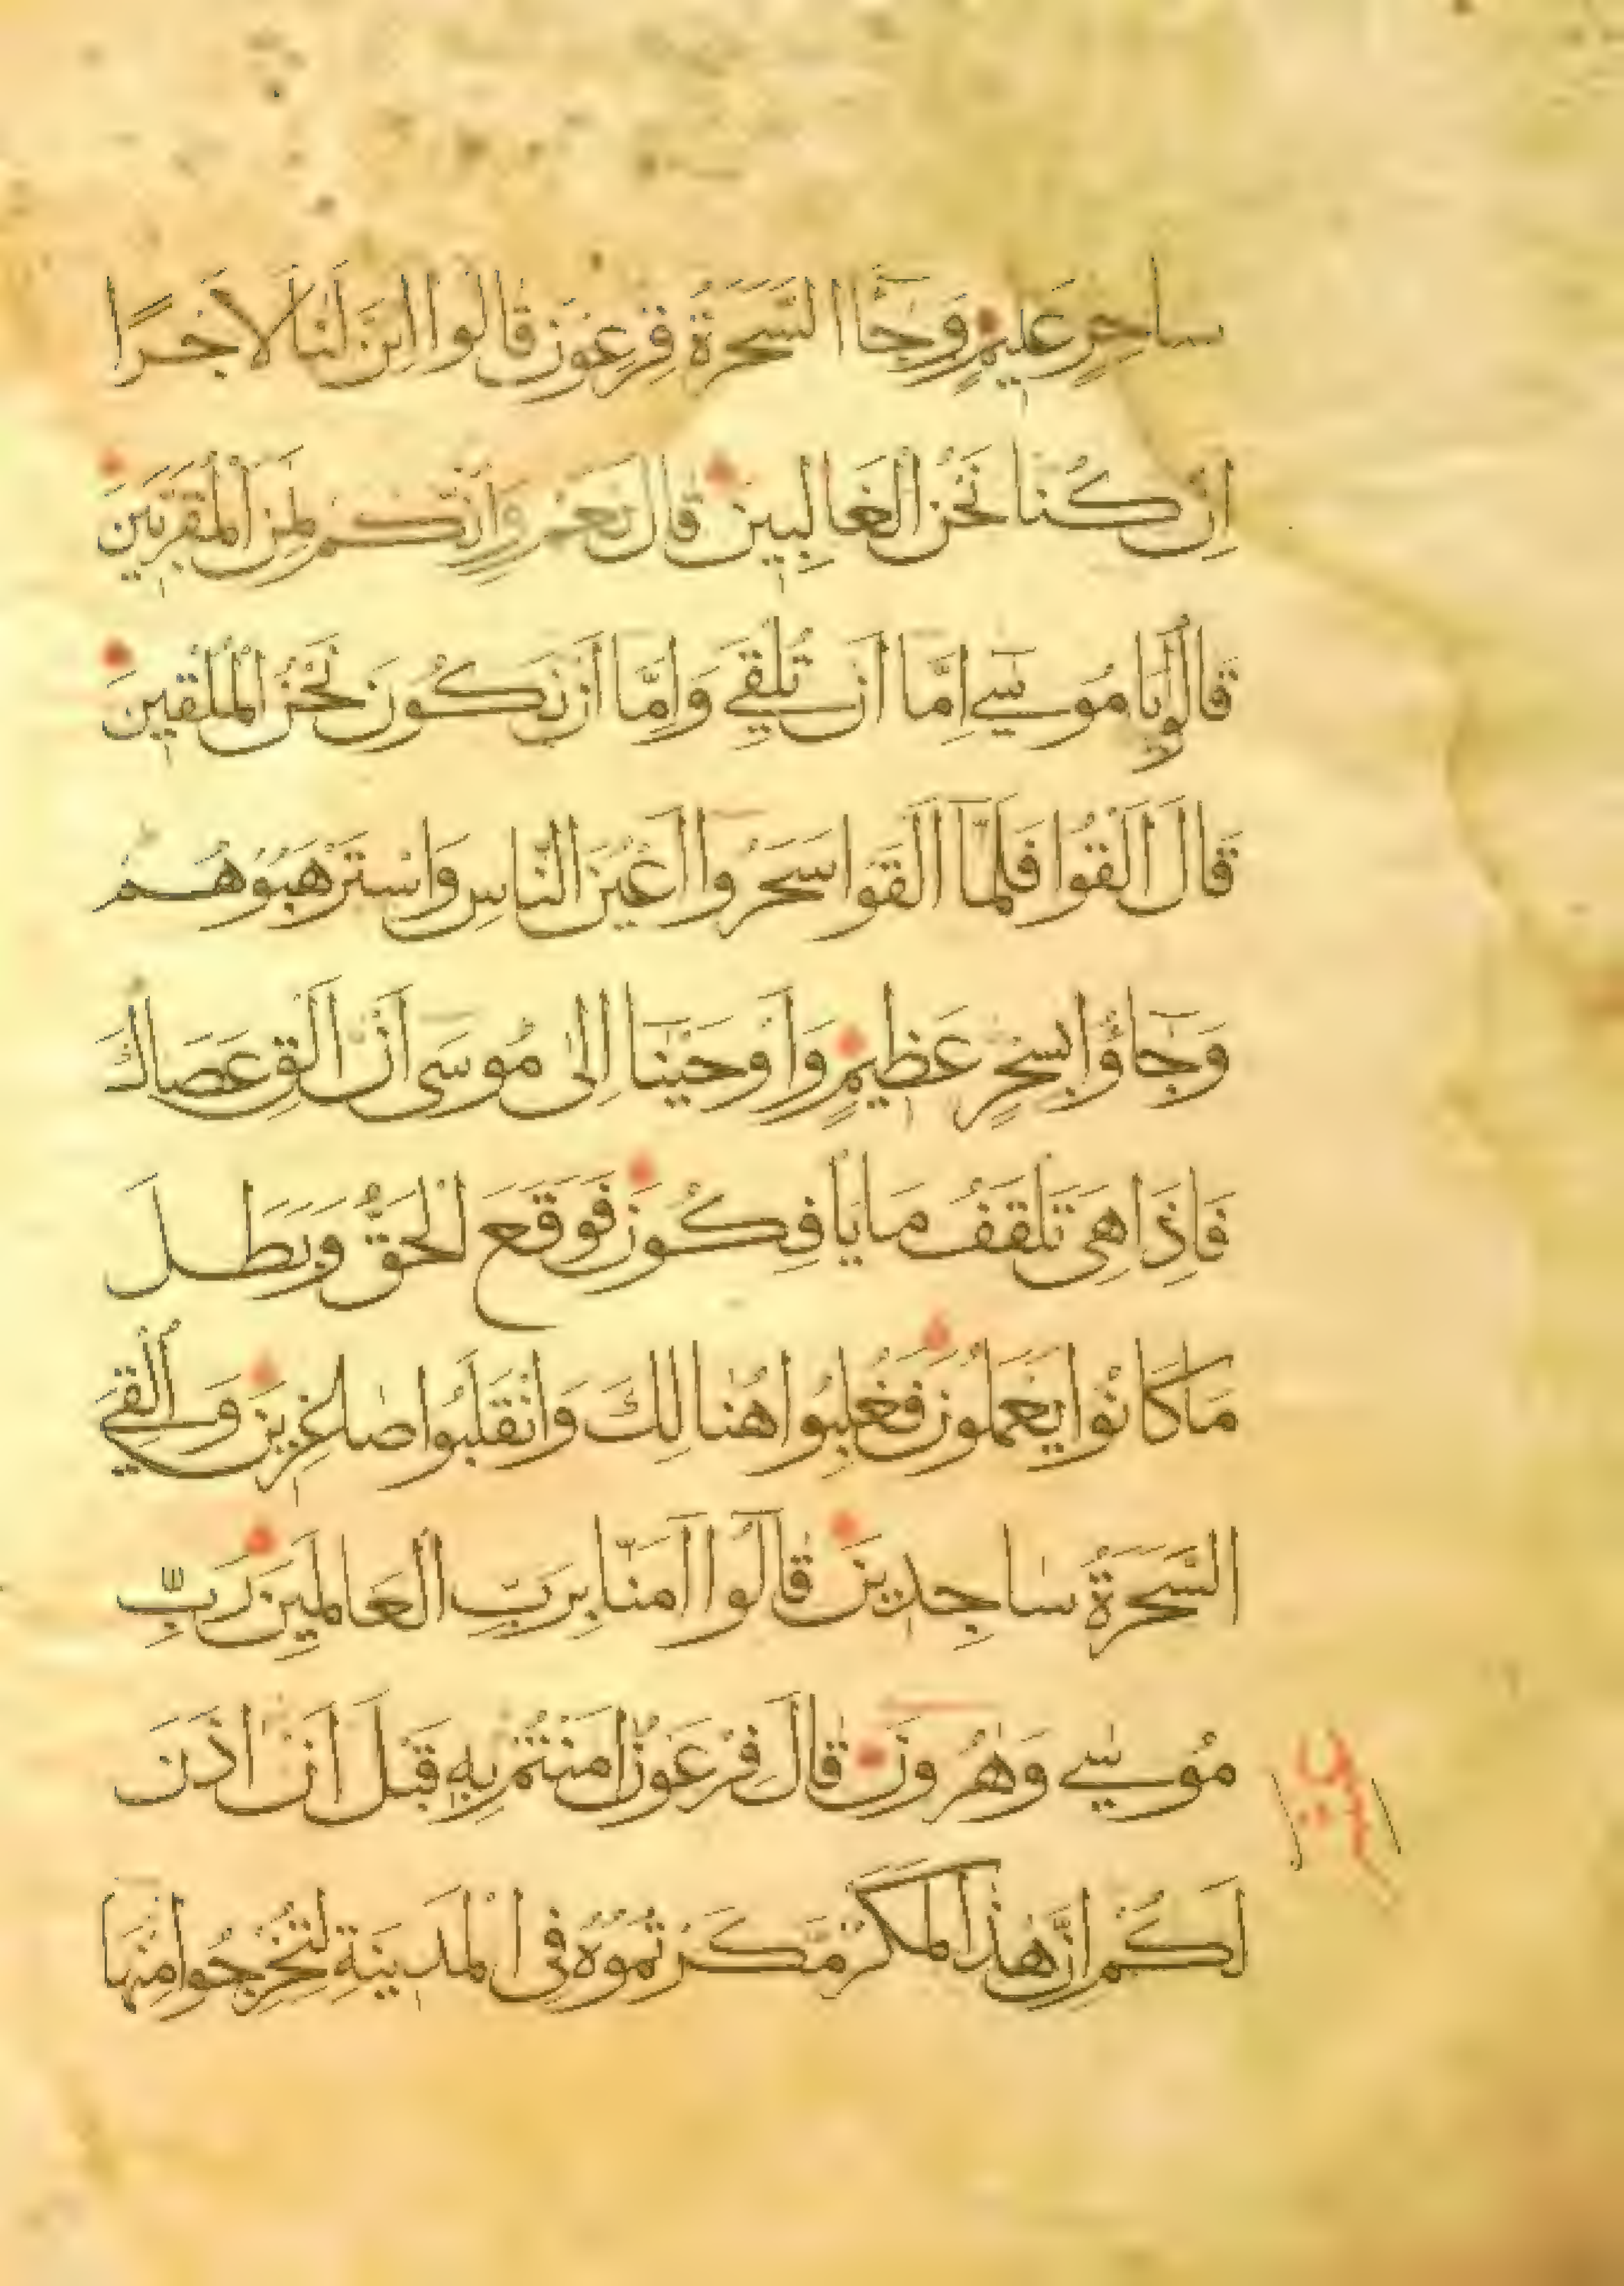 ساحِرٍ عَلِيمٍ وَجَآءَ السَّحَرَةُ فِرْعَوْنَ قَالُوا ائِنَّ لَنَا لَاَجْرًا
اِنْ كُنَّا نَحْنُ الْغَالِبِينَ قَالَ نَعَمْ وَاِنَّكُمْ لَمِنَ الْمُقَرَّبِينَ
قَالُوا يَا مُوسٰى اِمَّا اَنْ تُلْقِيَ وَاِمَّا اَنْ نَكُونَ نَحْنُ الْمُلْقِينَ
قَالَ اَلْقُوا فَلَمَّا اَلْقَوْا سَحَرُوا اَعْيُنَ النَّاسِ وَاسْتَرْهَبُوهُمْ
وَجَآؤُا بِسِحْرٍ عَظِيمٍ وَاَوْحَيْنَا اِلٰى مُوسَى اَنْ اَلْقِ عَصَاكَ
فَاِذَا هِيَ تَلْقَفُ مَا يَاْفِكُونَ فَوَقَعَ الْحَقُّ وَبَطَلَ
مَا كَانُوا يَعْمَلُونَ فَغُلِبُوا هُنَالِكَ وَانْقَلَبُوا صٰاغِرِينَ وَاُلْقِيَ
السَّحَرَةُ سَاجِدِينَ قَالُوا اٰمَنَّا بِرَبِّ الْعَالَمِينَ رَبِّ
مُوسٰى وَهٰرُونَ قَالَ فِرْعَوْنُ اٰمَنْتُمْ بِهِ قَبْلَ اَنْ اٰذَنَ
لَكُمْ اِنَّ هٰذَا لَمَكْرٌ مَكَرْتُمُوهُ فِى الْمَدِينَةِ لِتُخْرِجُوا مِنْهَا